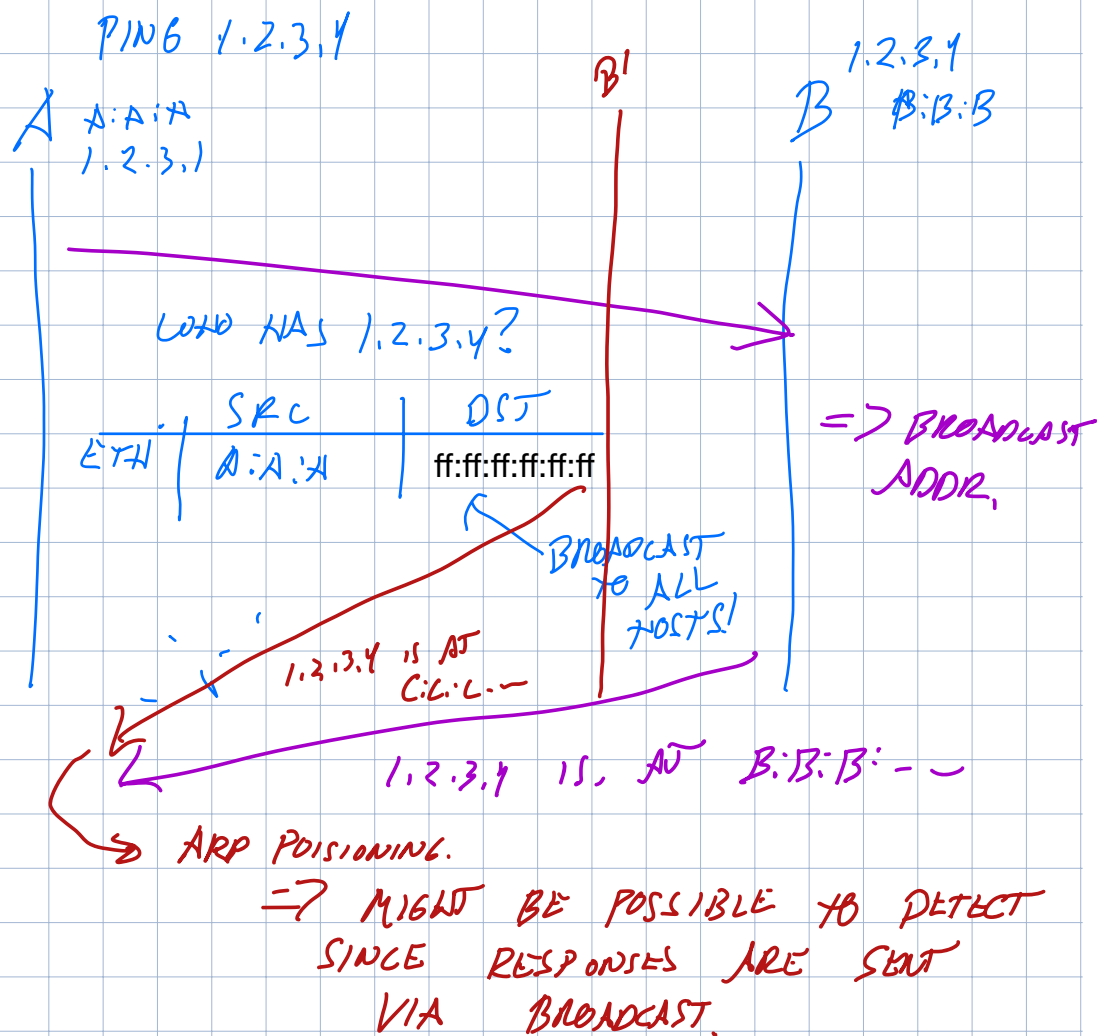 PING 1.2.3.4
B'
1.2.3.4
A A:A:A
B B:B:B
1.2.3.1
WHO HAS 1.2.3.4?
SRC DST
ETH A:A:A ff:ff:ff:ff:ff:ff
=> BROADCAST
ADDR.
BROADCAST
TO ALL
HOSTS!
1.2.3.4 IS AT
C:C:C.-
1.2.3.4 IS AT B:B:B:--
ARP POISIONING.
=> MIGHT BE POSSIBLE TO DETECT
SINCE RESPONSES ARE SENT
VIA BROADCAST.